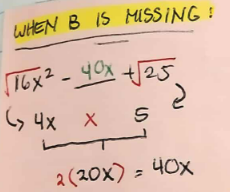 WHEN B IS MISSING!
√16x² - 40x + √25
4x x 5
2(20x) = 40x